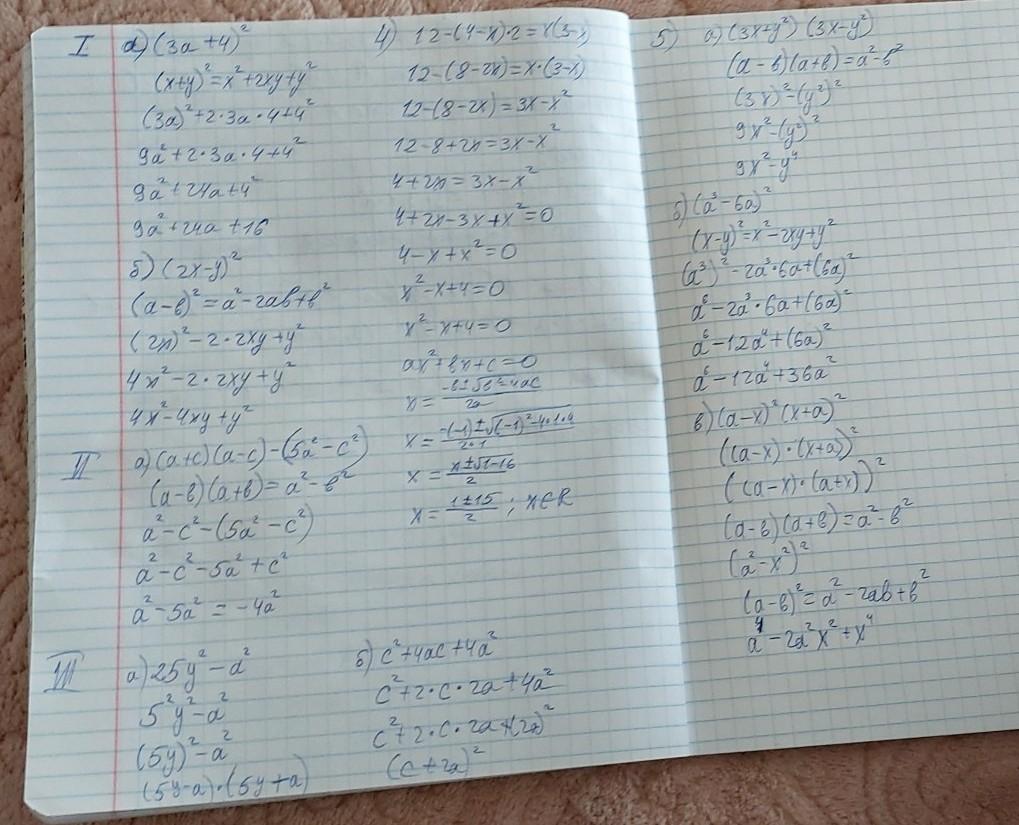 I а) (3a + 4)²
(x+y)² = x² + 2xy + y²
(3a)² + 2·3a·4 + 4²
9a² + 2·3a·4 + 4²
9a² + 24a + 4²
9a² + 24a + 16
б) (2x-y)²
(a-b)² = a² - 2ab + b²
(2x)² - 2·2xy + y²
4x² - 2·2xy + y²
4x² - 4xy + y²
II а) (a+c)(a-c) - (5a² - c²)
(a-b)(a+b) = a² - b²
a² - c² - (5a² - c²)
a² - c² - 5a² + c²
a² - 5a² = -4a²
III а) 25y² - a²
5²y² - a²
(5y)² - a²
(5y-a)·(5y+a)
б) c² + 4ac + 4a²
c² + 2·c·2a + 4a²
c² + 2·c·2a + (2a)²
(c + 2a)²
4) 12-(4-x)·2 = x(3-x)
12-(8-2x) = x·(3-x)
12-(8-2x) = 3x - x²
12-8+2x = 3x - x²
4+2x = 3x - x²
4+2x-3x+x² = 0
4-x+x² = 0
x²-x+4 = 0
x²-x+4 = 0
ax²+bx+c = 0
x = (-b±√(b²-4ac))/2a
x = (-(-1)±√((-1)²-4·1·4))/(2·1)
x = (x±√(1-16))/2
x = (1±15)/2 ; x∈R
5) а) (3x+y²)(3x-y²)
(a-b)(a+b) = a²-b²
(3x)² - (y²)²
9x² - (y²)²
9x² - y⁴
б) (a³-6a)²
(x-y)² = x² - 2xy + y²
(a³)² - 2a³·6a + (6a)²
a⁶ - 2a³·6a + (6a)²
a⁶ - 12a⁴ + (6a)²
a⁶ - 12a⁴ + 36a²
в) (a-x)²(x+a)²
((a-x)·(x+a))²
((a-x)·(a+x))²
(a-b)(a+b) = a²-b²
(a²-x²)²
(a-b)² = a² - 2ab + b²
a⁴ - 2a²x² + x⁴